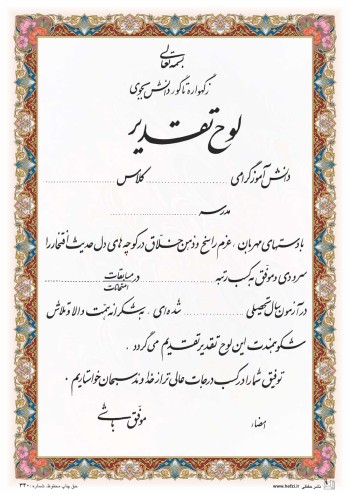 بسمه تعالی
زگهواره تا گور دانش بجوی
لوح تقدیر
دانش آموز گرامی ........................ کلاس ........................
مدرسه ........................
با دستهای مهربان ، عزم راسخ و ذهن خلّاق در کوچه های دل حدیث افتخار را
سرودی و موفّق به کسب رتبه ........................ در مسابقات
امتحانات
در آزمون سال تحصیلی ........................ شده ای ، به شکرانه همّت والا و تلاش
شکوهمندت این لوح تقدیر تقدیم می گردد .
توفیق شما را در کسب درجات عالی تر از خداوند سبحان خواستاریم .
موفّق باشی
امضاء
حق چاپ محفوظ شماره : ۳۴۰
www.hefzi.ir نشر حفظی